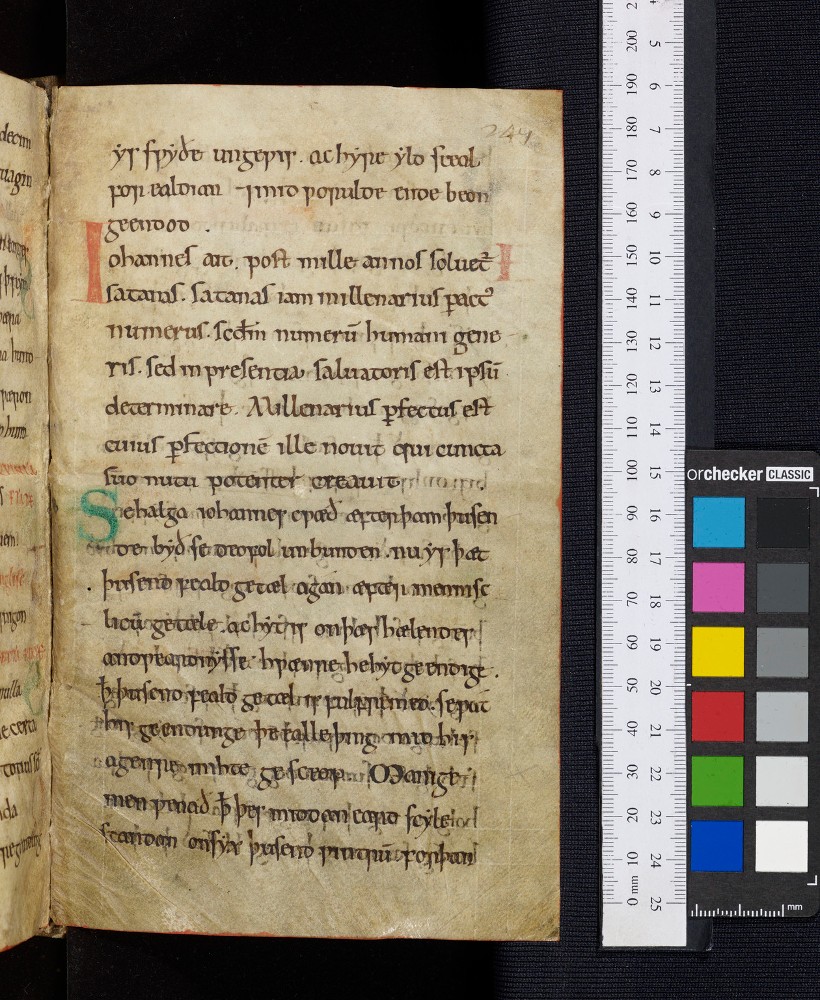 249
ys swyðe ungewis. ac hyre ylo sceal
for ealdian ⁊ mid forulde ende beon
geendod.
Iohannes ait. post mille annos soluet̄
satanas. Satanas iam millenarius p̄act⁹
numerus. scd̄m numerū humani gene
ris. sed in presentia saluatoris est ipsū
determinare. Millenarius p̄fectus est
cuius p̄fectionē ille nouit qui cuncta
suo nutu potenter creauit.
Se halga iohannes cwæd æfter þam þusen
de byd se deofol unbunden. nu ys þæt
þusend feald getæl agān æfter mennisc
licū getæle. ac hyt is on þæs hælendes
andweardnysse. hwænne he hyt geendige.
þ þusend feald getæl is fulfremed. se wat
his geendunge þe ealle þing mid his
agenre mihte gesceop. Manige
men wenad þ þes middan eard scyle
standan on syx þusend wintrū forþan